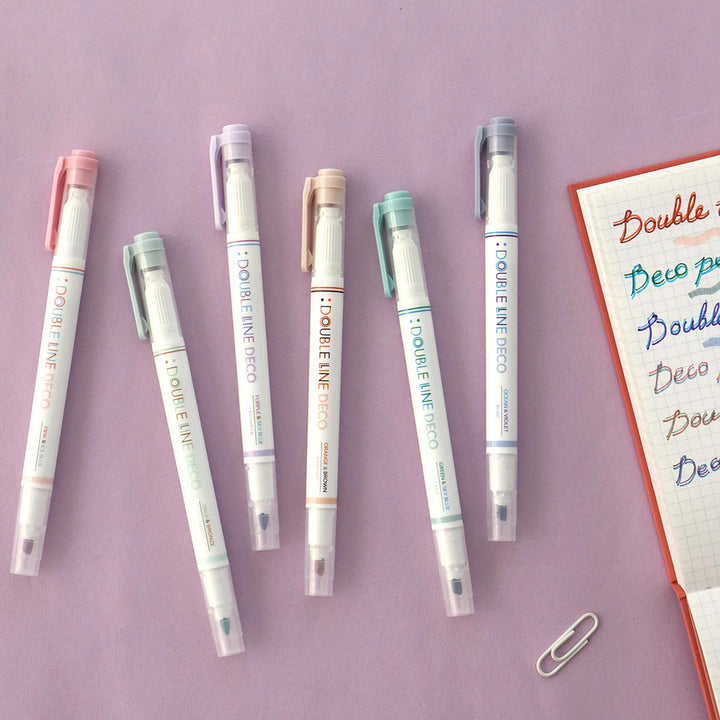 DOUBLE LINE DECO
PINK & SKY BLUE
DOUBLE LINE DECO
SAGE & BRONZE
DOUBLE LINE DECO
PURPLE & SKY BLUE
DOUBLE LINE DECO
ORANGE & BROWN
DOUBLE LINE DECO
GREEN & SKY BLUE
DOUBLE LINE DECO
OCEAN & VIOLET
Double
Deco
Double
Deco
Deco